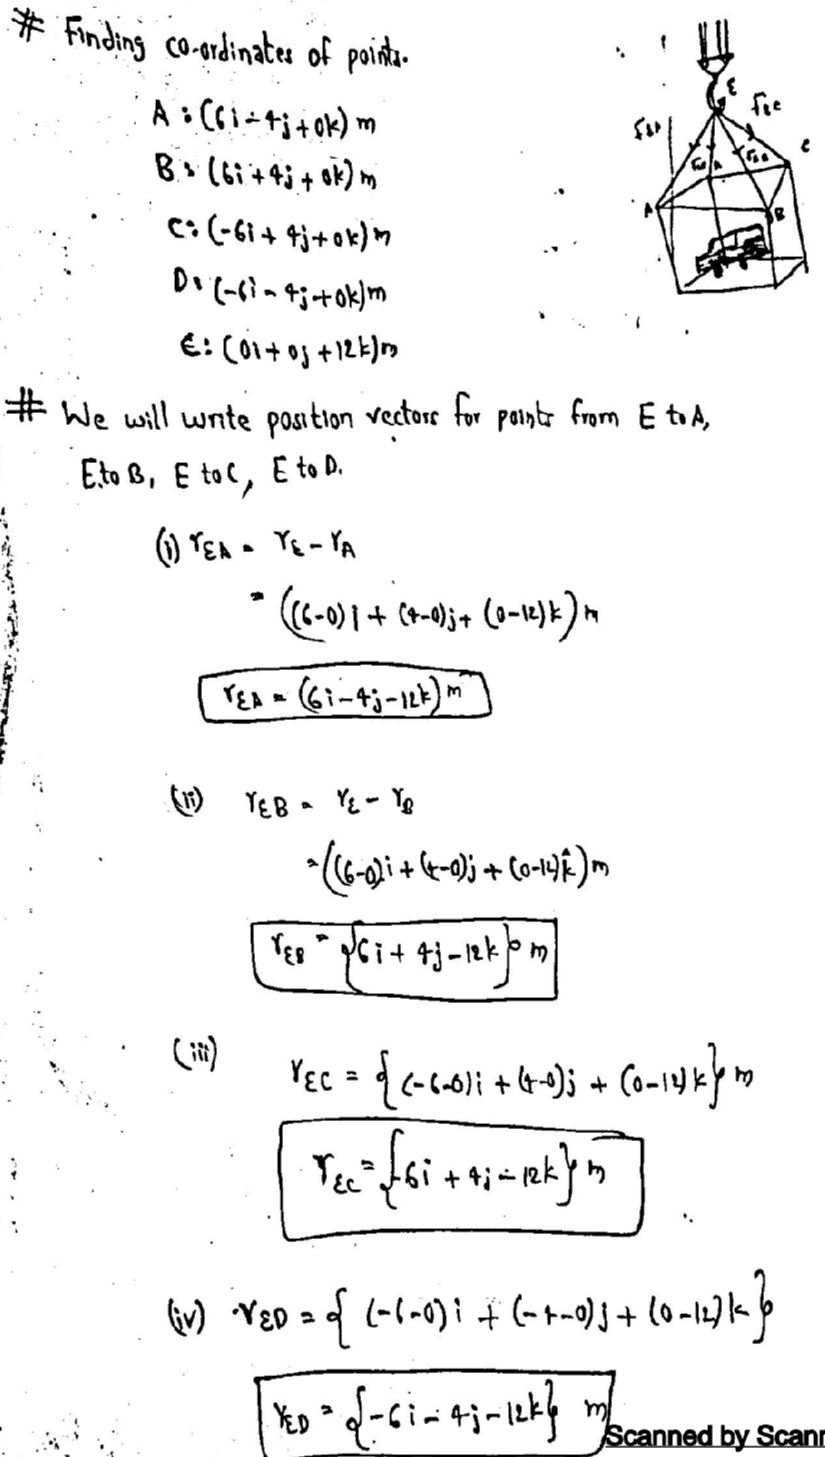 # Finding co-ordinates of points.
A : (6i - 4j + 0k) m
B : (6i + 4j + 0k) m
C : (-6i + 4j + 0k) m
D : (-6i - 4j + 0k) m
E : (0i + 0j + 12k) m
E
F_EC
A
B
C
# We will write position vectors for points from E to A,
E to B, E to C, E to D.
(i) r_EA = r_E - r_A
= ((6-0)i + (4-0)j + (0-12)k) m
r_EA = (6i - 4j - 12k) m
(ii) r_EB = r_E - r_B
= ((6-0)i + (4-0)j + (0-12)k̂) m
r_EB = {6i + 4j - 12k} m
(iii) r_EC = {(-6-0)i + (4-0)j + (0-12)k} m
r_EC = {-6i + 4j - 12k} m
(iv) r_ED = {(-6-0)i + (-4-0)j + (0-12)k}
r_ED = {-6i - 4j - 12k} m
Scanned by Scann